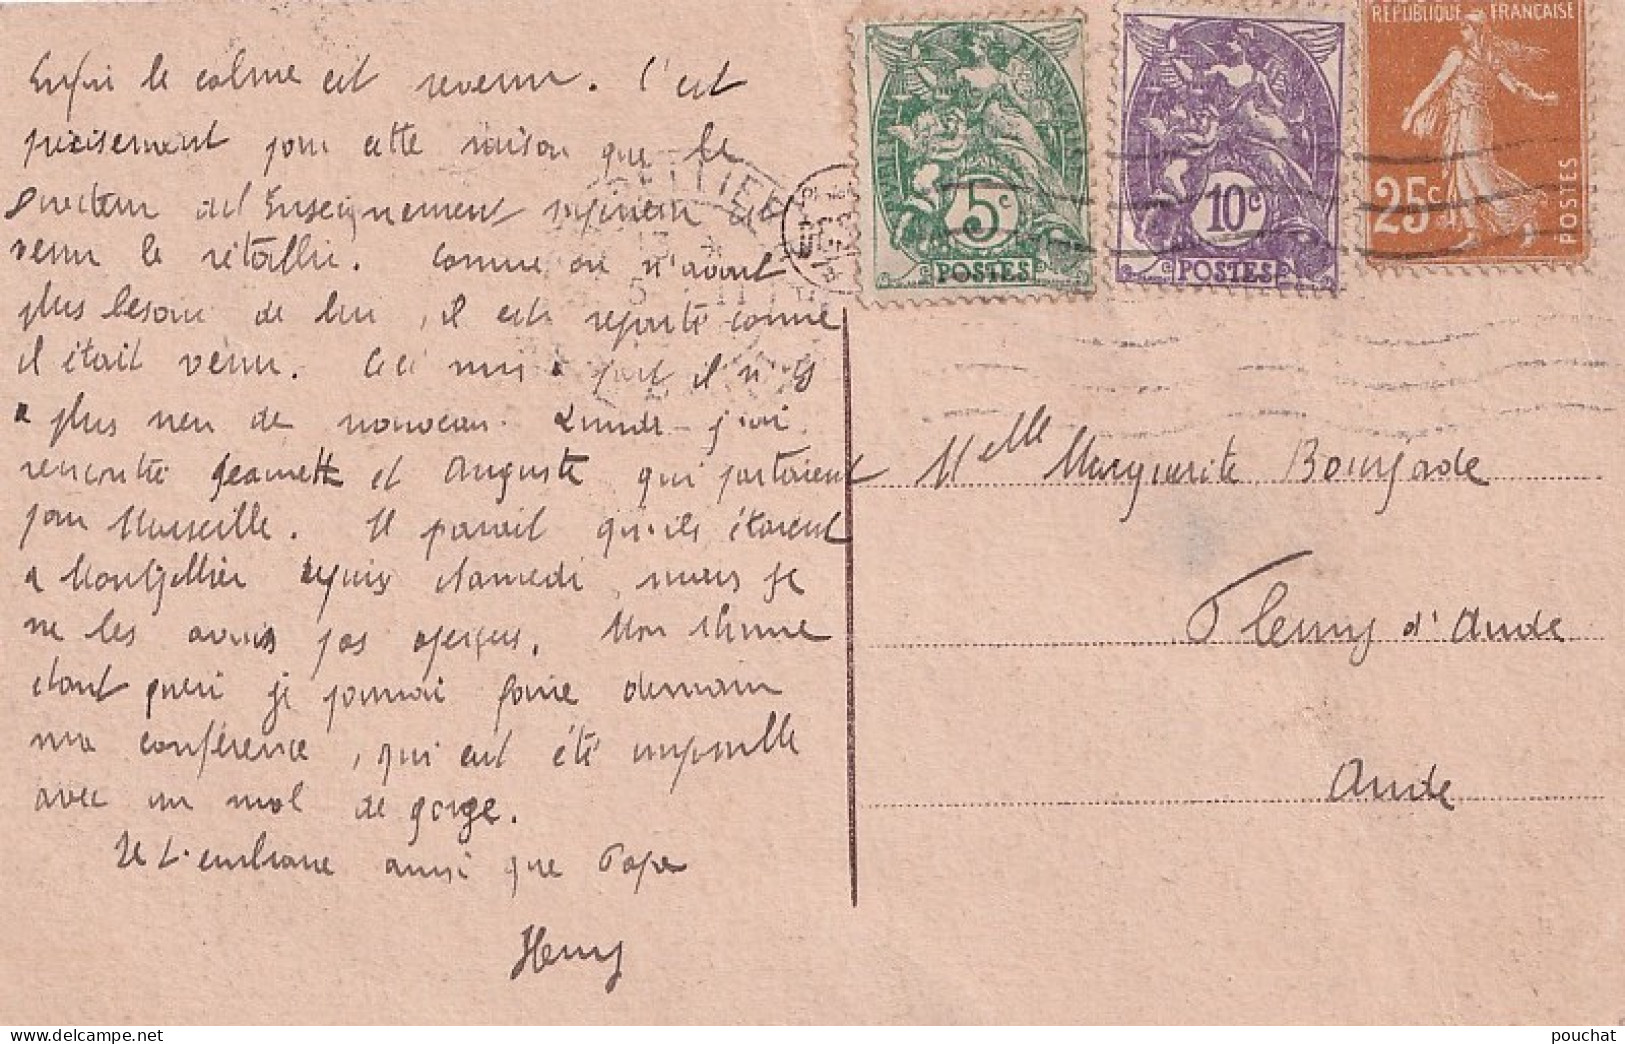 Enfin le calme est revenu. C'est
précisement pour cette raison que le
Directeur de l'Enseignement supérieur est
venu le rétablir. Comme on n'avait
plus besoin de lui, il est reparti comme
il était venu. Ceci mis à part il n'y
a plus rien de nouveau. Lundi j'ai
rencontré Jeanette et Auguste qui partaient
pour Marseille. Il parait qu'ils étaient
a Montpellier depuis samedi, mais je
ne les avais pas aperçus. Mon rhume
étant guéri je pourrai faire demain
ma conférence, qui eut été impossible
avec un mal de gorge.
Je t'embrasse ainsi que Papa
Henry
RÉPUBLIQUE FRANÇAISE
5c
POSTES
10c
POSTES
25c
POSTES
Melle Marguerite Bourjade
Fleury d'Aude
Aude
pouchat